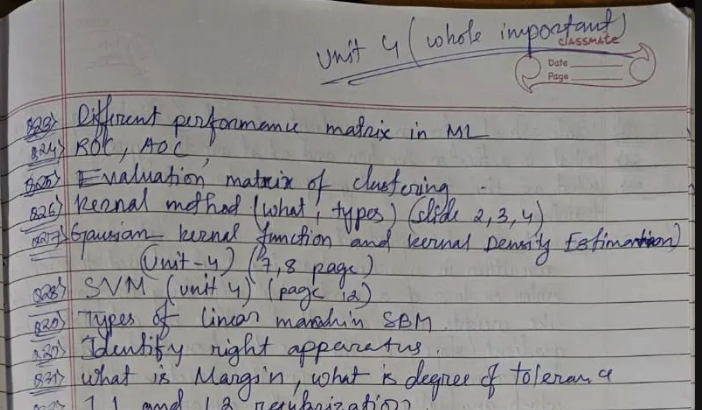 Unit 4 (whole important)
CLASSMATE
Date
Page
Q23> Different performance matrix in ML
Q24> ROC, AOC,
Q25> Evaluation matrix of clustering.
Q26> Kernal method (what, types) (slide 2,3,4)
Q27> Gaussian kernal function and kernal Density Estimation)
(Unit-4) (7,8 page)
Q28> SVM (unit 4) (page 12)
Types of linear in SBM
Identify right apparatus.
Q31> What is Margin, what is degree of tolerance
L1 and L2